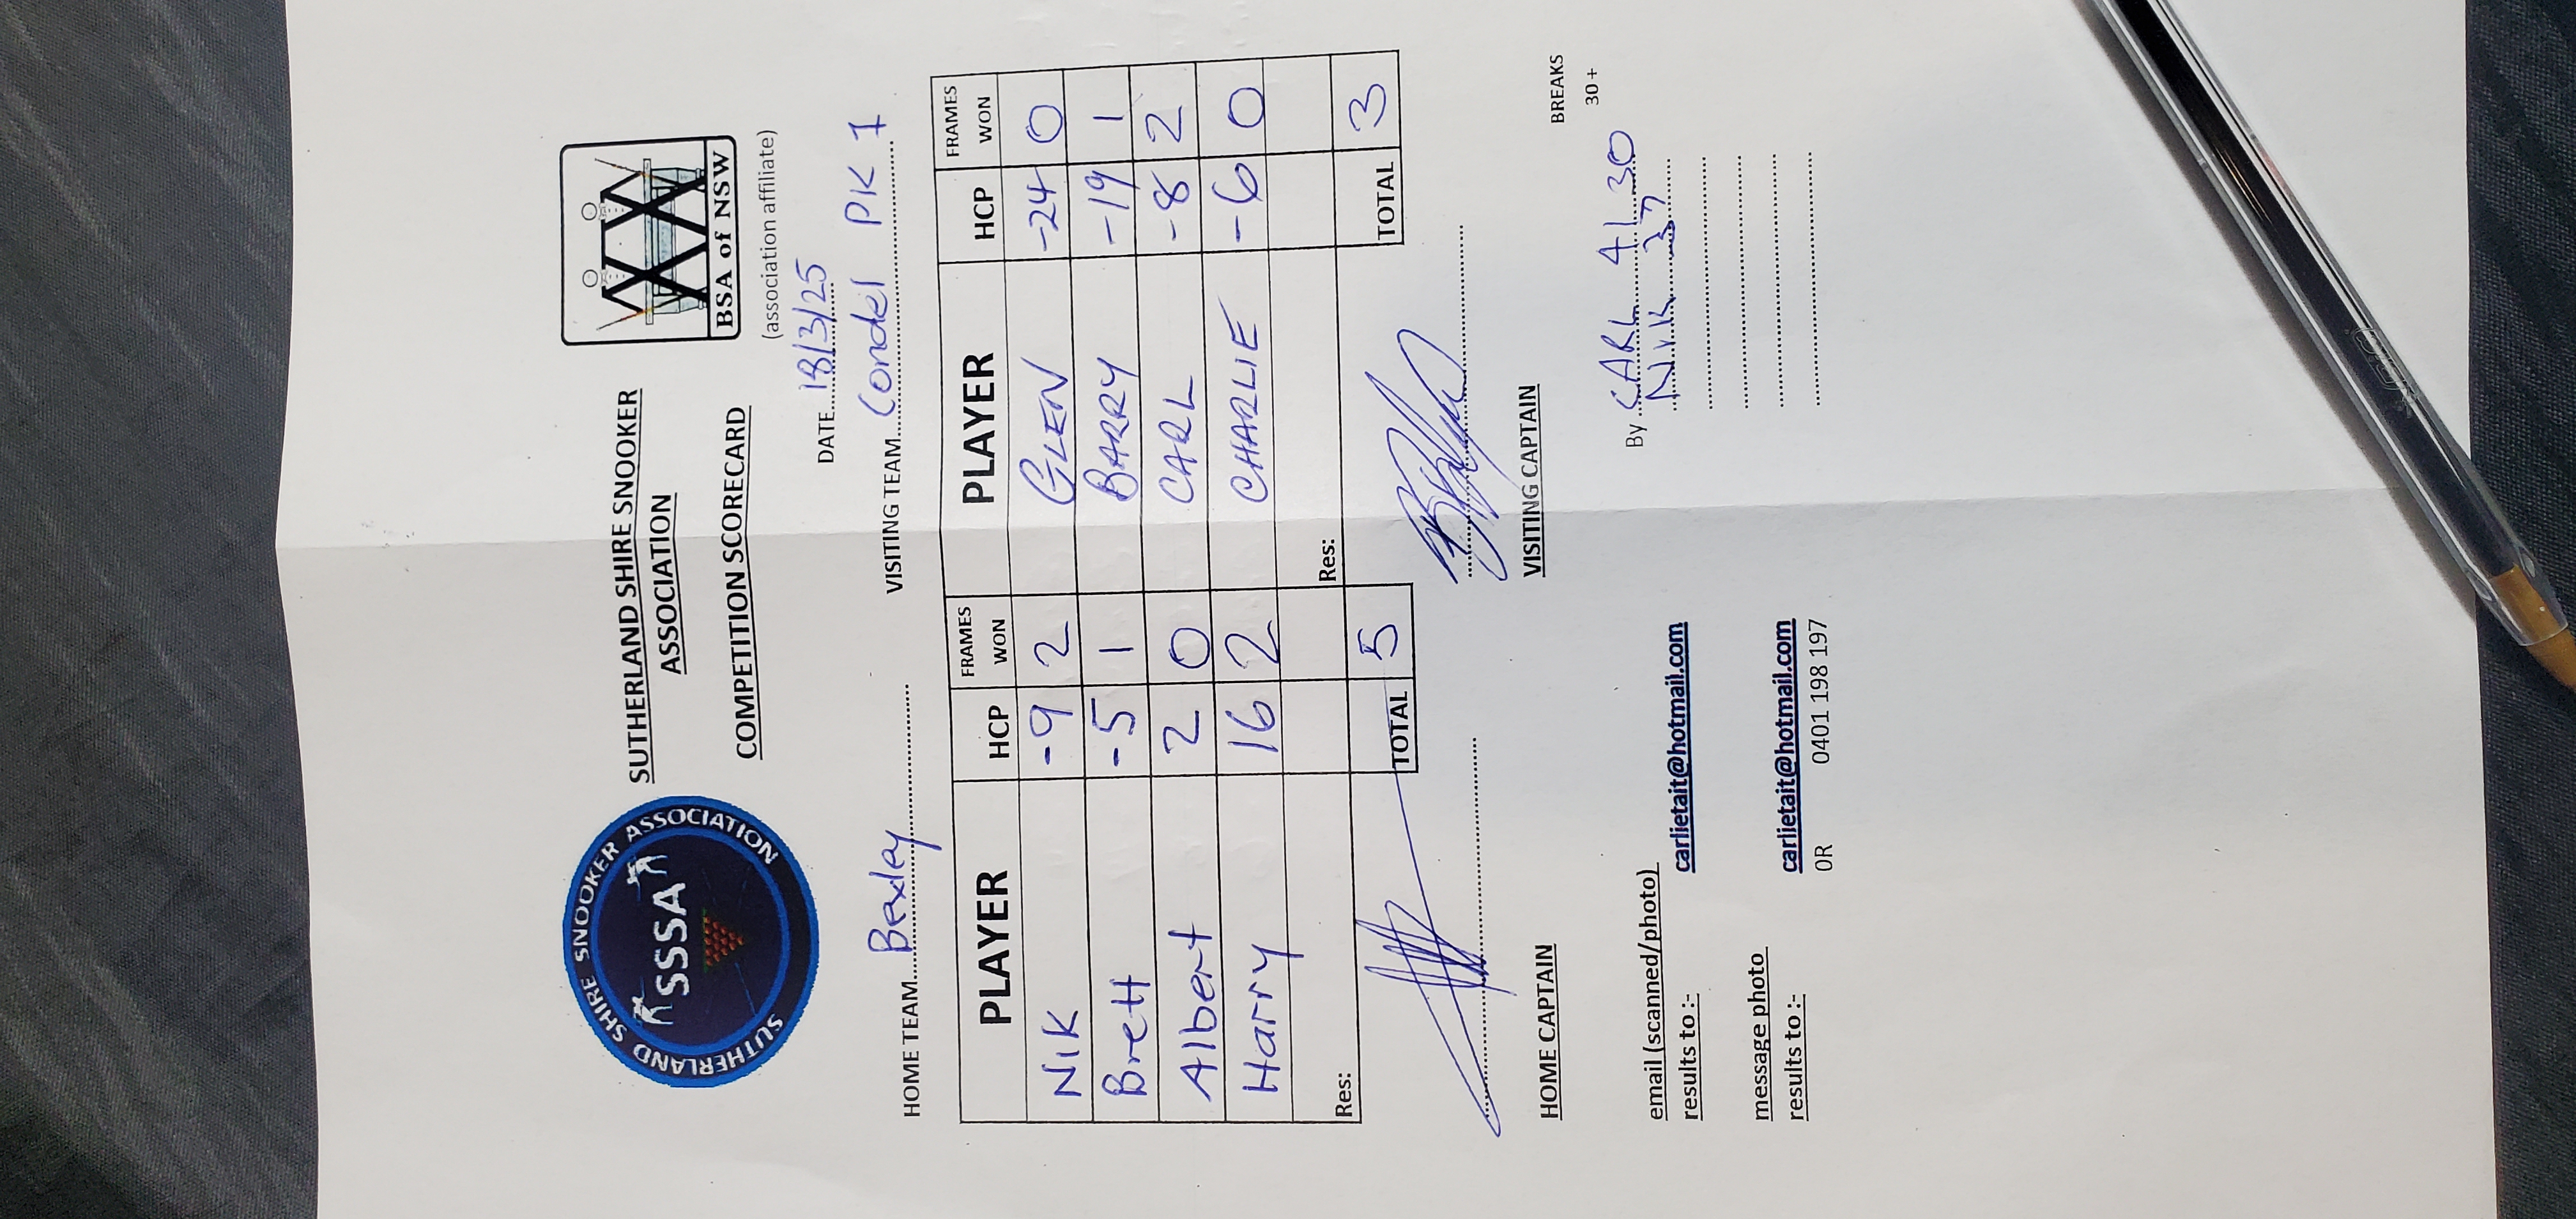 SUTHERLAND SHIRE SNOOKER ASSOCIATION
SSSA
SUTHERLAND SHIRE SNOOKER
ASSOCIATION
COMPETITION SCORECARD
BSA of NSW
(association affiliate)
DATE 18/3/25
HOME TEAM Bexley VISITING TEAM Condel PK 1
PLAYER HCP FRAMES WON PLAYER HCP FRAMES WON
Nik -9 2 GLEN -24 0
Brett -5 1 BARRY -19 1
Albert 2 0 CARL -8 2
Harry 16 2 CHARLIE -6 0
Res: Res:
TOTAL 5 TOTAL 3
HOME CAPTAIN VISITING CAPTAIN
BREAKS
30+
email (scanned/photo)
results to:- carlietait@hotmail.com
By CARL 41 30
Nik 37
message photo
results to:- carlietait@hotmail.com
OR 0401 198 197